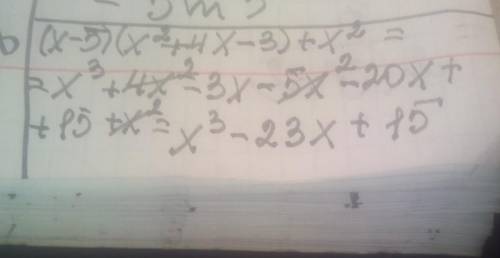 (x-5)(x²+4x-3)+x²=
=x³+4x²-3x-5x²-20x+
+15+x²=x³-23x+15